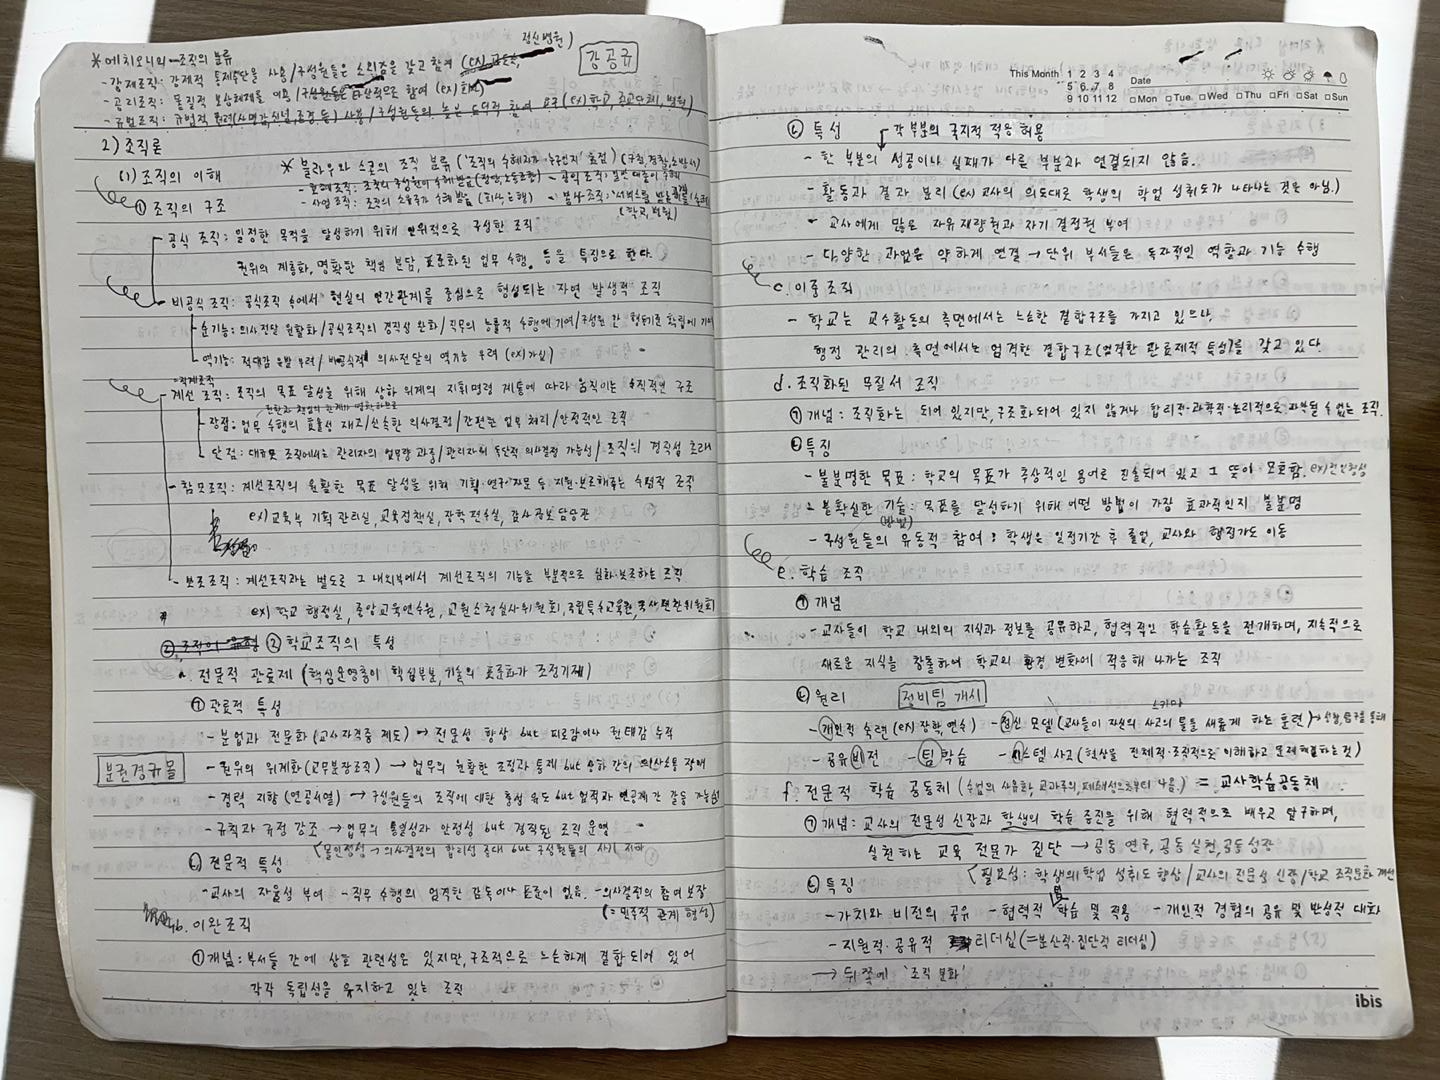 정신병원)
* 에치오니의 조직의 분류
강공규
- 강제조직: 강제적 통제수단을 사용/구성원들은 소외감을 갖고 참여 (ex) 교도소,
- 공리조직: 물질적 보상체제를 이용/구성원들은 타산적으로 참여 (ex) 회사)
- 규범조직: 규범적 권력(사명감, 신념, 존경 등) 사용/구성원들의 높은 도덕적 참여 요구 (ex) 학교, 종교단체, 병원)
2) 조직론
(1) 조직의 이해
* 블라우와 스콧의 조직 분류 ('조직의 수혜자가 누구인지' 초점)
- 호혜조직: 조직의 구성원이 수혜 받음 (정당, 노동조합) - 공익 조직: 일반 대중이 수혜 (군대, 경찰, 소방서)
- 사업 조직: 조직의 소유주가 수혜 받음 (회사, 은행) - 봉사 조직: '서비스를 받는 고객'이 수혜
(학교, 병원)
① 조직의 구조
공식 조직: 일정한 목적을 달성하기 위해 인위적으로 구성한 조직
권위의 계층화, 명확한 책임 분담, 표준화된 업무 수행 등을 특징으로 한다.
비공식 조직: 공식조직 속에서 현실의 인간관계를 중심으로 형성되는 자연 발생적 조직
순기능: 의사전달 원활화/공식조직의 경직성 완화/직무의 능률적 수행에 기여/구성원 간 행동기준 확립에 기여
역기능: 적대감 유발 우려/비공식적 의사전달의 역기능 우려 (ex) 가십)
계선 조직: 조직의 목표 달성을 위해 상하 위계의 지휘명령 계통에 따라 움직이는 수직적인 구조
권한과 책임의 한계가 명확하므로
장점: 업무 수행의 효율성 제고/신속한 의사결정/간편한 업무 처리/안정적인 조직
단점: 대규모 조직에서는 관리자의 업무량 과중/관리자의 독단적 의사결정 가능성/조직의 경직성 초래
참모조직: 계선조직의 원활한 목표 달성을 위해 기획·연구·자문 등 지원·보조해주는 수평적 조직
ex) 교육부 기획 관리실, 교육정책실, 장학 편수실, 감사 공보 담당관
보조조직: 계선조직과는 별도로 그 내외부에서 계선조직의 기능을 부분적으로 심화·보조하는 조직
ex) 학교 행정실, 중앙교육연수원, 교원소청심사위원회, 국립특수교육원, 국사편찬위원회
② 학교조직의 특성
a. 전문적 관료제 (핵심운영층이 핵심부분, 기술의 표준화가 조정기제)
㉠ 관료적 특성
- 분업과 전문화 (교사자격증 제도) → 전문성 향상 but 피로감이나 권태감 누적
분권경규몰
- 권위의 위계화 (교무분장조직) → 업무의 원활한 조정과 통제 but 상하 간의 의사소통 장애
- 경력 지향 (연공서열) → 구성원들의 조직에 대한 충성 유도 but 업적과 연공제 간 갈등 가능성
- 규칙과 규정 강조 → 업무의 통일성과 안정성 but 경직된 조직 운영
몰인정성 → 의사결정의 합리성 증대 but 구성원들의 사기 저하
㉡ 전문적 특성
- 교사의 자율성 부여 - 직무 수행의 엄격한 감독이나 표준이 없음. - 의사결정의 참여 보장
(= 민주적 관계 형성)
b. 이완조직
㉠ 개념: 부서들 간에 상호 관련성은 있지만, 구조적으로 느슨하게 결합되어 있어
각각 독립성을 유지하고 있는 조직
This Month 1 2 3 4
5 6 7 8
9 10 11 12
Date
□Mon □Tue □Wed □Thu □Fri □Sat □Sun
㉡ 특성
각 부분의 국지적 적응 허용
- 한 부분의 성공이나 실패가 다른 부분과 연결되지 않음.
- 활동과 결과 분리 (ex) 교사의 의도대로 학생의 학업 성취도가 나타나는 것은 아님.)
- 교사에게 많은 자유재량권과 자기 결정권 부여
- 다양한 과업은 약하게 연결 → 단위 부서들은 독자적인 역할과 기능 수행
c. 이중 조직
- 학교는 교수활동의 측면에서는 느슨한 결합구조를 가지고 있으나,
행정 관리의 측면에서는 엄격한 결합구조(엄격한 관료제적 특성)를 갖고 있다.
d. 조직화된 무질서 조직
㉠ 개념: 조직화는 되어 있지만, 구조화되어 있지 않거나 합리적·과학적·논리적으로 파악될 수 없는 조직.
㉡ 특징
- 불분명한 목표: 학교의 목표가 추상적인 용어로 진술되어 있고 그 뜻이 모호함. ex) 전인형성
- 불확실한 기술: 목표를 달성하기 위해 어떤 방법이 가장 효과적인지 불분명
(방법)
- 구성원들의 유동적 참여: 학생은 일정기간 후 졸업, 교사와 행정가도 이동
e. 학습 조직
㉠ 개념
- 교사들이 학교 내외의 지식과 정보를 공유하고, 협력적인 학습활동을 전개하며, 지속적으로
새로운 지식을 창출하여 학교의 환경 변화에 적응해 나가는 조직
㉡ 원리
정비팀 개시
스키마
- 개인적 숙련 (ex) 장학, 연수) - 정신 모델 (교사들이 자신의 사고의 틀을 새롭게 하는 훈련) → 성찰, 탐구를 통해
- 공유 비전 - 팀 학습 - 시스템 사고 (현상을 전체적·조직적으로 이해하고 문제해결하는 것)
f. 전문적 학습 공동체 (수업의 사유화, 교과주의, 폐쇄성으로부터 나옴.) = 교사학습공동체
㉠ 개념: 교사의 전문성 신장과 학생의 학습 증진을 위해 협력적으로 배우고 탐구하며,
실천하는 교육 전문가 집단 → 공동 연구, 공동 실천, 공동 성장
필요성: 학생의 학업 성취도 향상/교사의 전문성 신장/학교 조직문화 개선
㉡ 특징
- 가치와 비전의 공유 - 협력적 학습 및 적용 - 개인적 경험의 공유 및 반성적 대화
- 지원적·공유적 리더십 (= 분산적·집단적 리더십)
→ 뒤쪽에 '조직 문화'
ibis